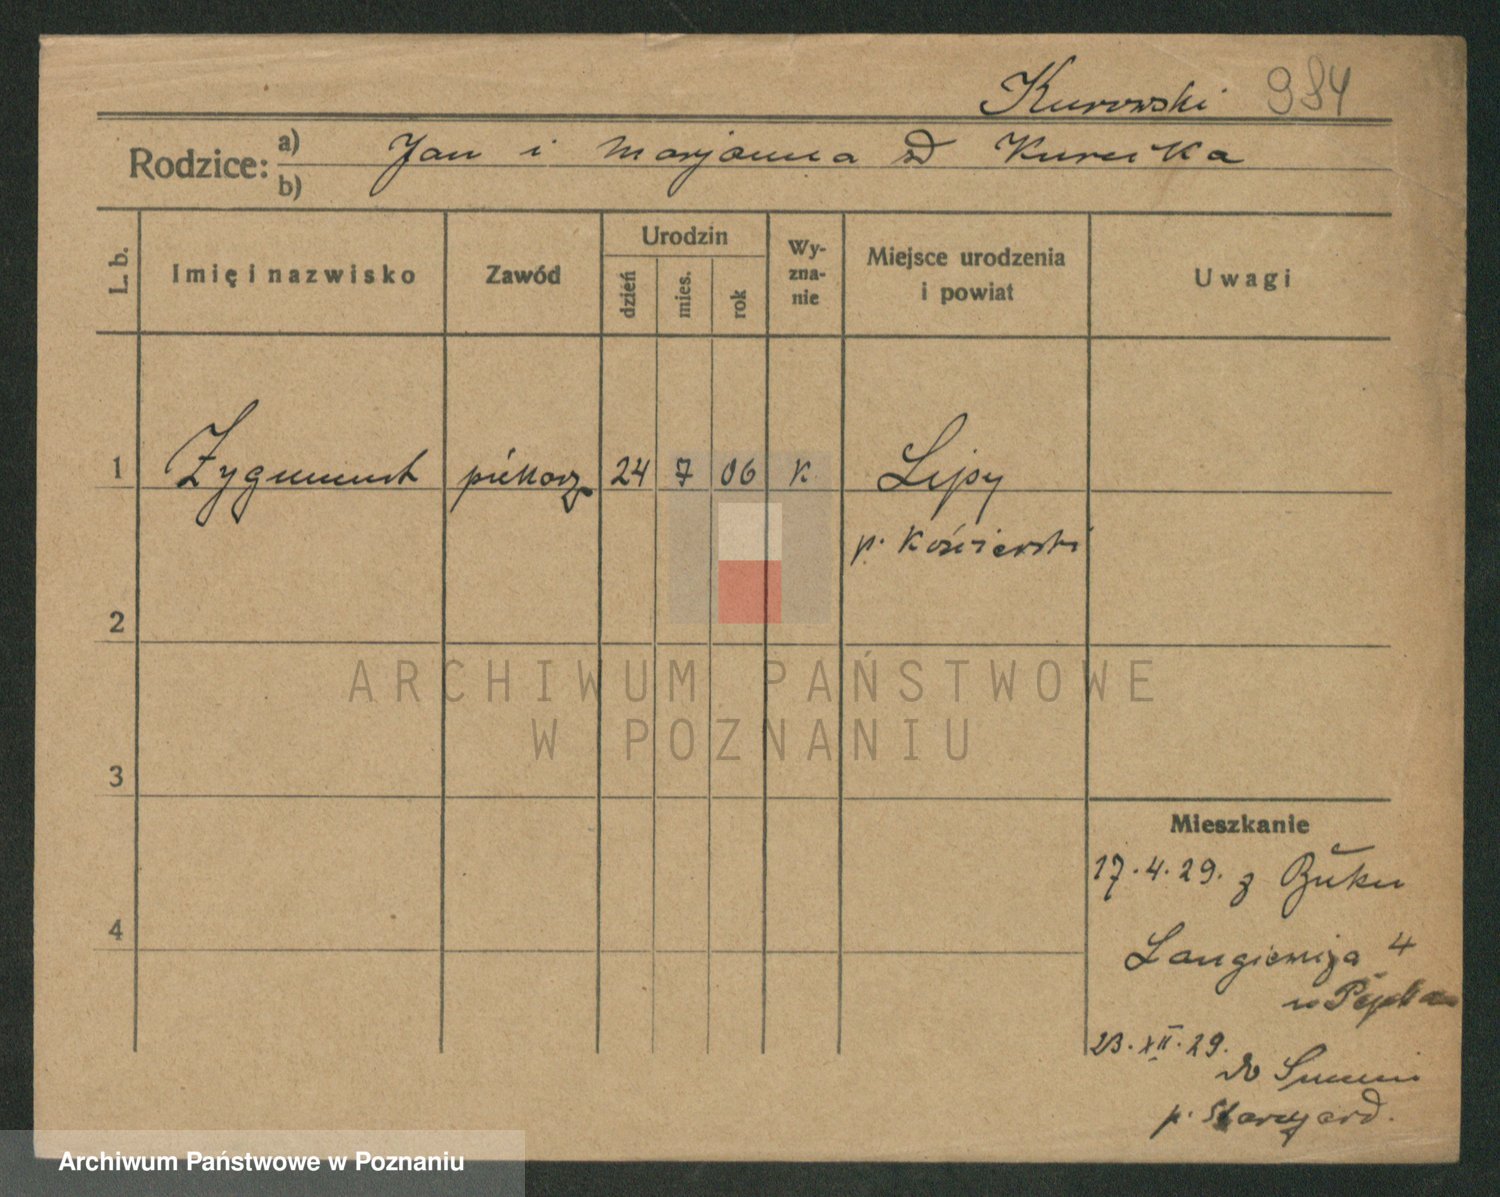 Kurowski 984
Rodzice: a) Jan i Marjanna zd Kurcika
b)
L. b.
Imię i nazwisko
Zawód
Urodzin
dzień
mies.
rok
Wy-
zna-
nie
Miejsce urodzenia
i powiat
Uwagi
1 Zygmunt piekarz 24 7 06 K Lipy
p. Kościerski
2
3
4
ARCHIWUM PAŃSTWOWE
W POZNANIU
Mieszkanie
17.4.29. z Buku
Langiewicza 4
u
23.XII.29.
do Sumin
p. Starogard.
Archiwum Państwowe w Poznaniu